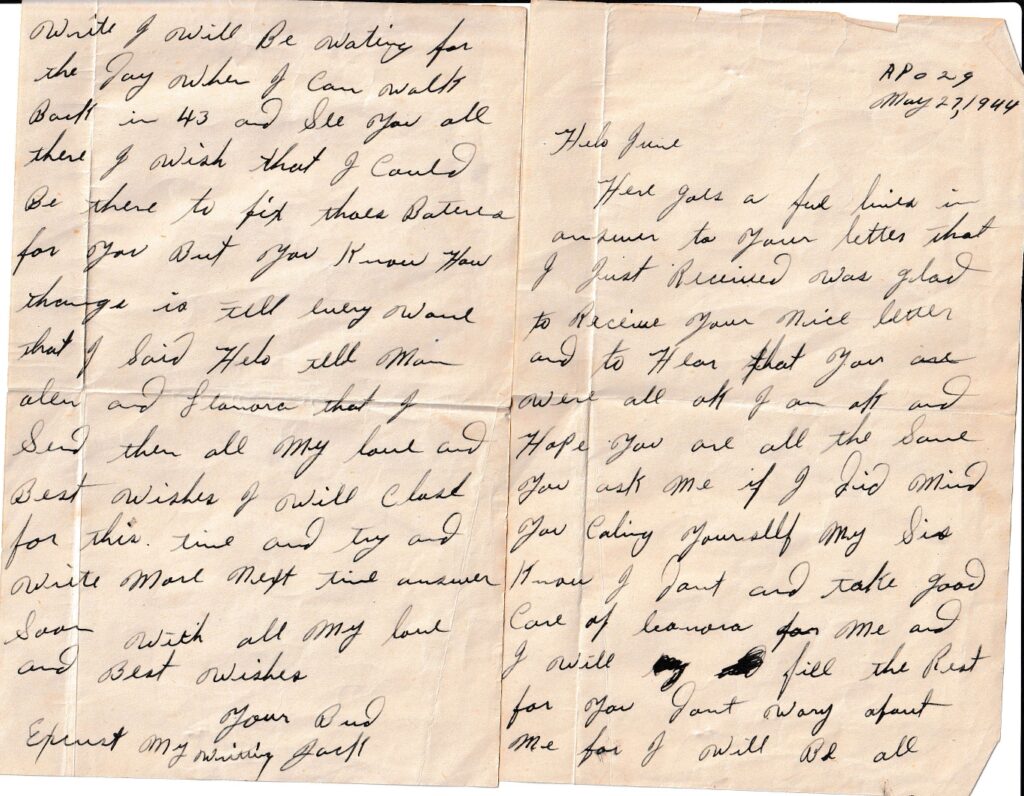 APO 29
May 27, 1944
Helo June
Here goes a few lines in
answer to your letter that
I Just Received was glad
to Receive your nice letter
and to Hear that you
were all ok I am ok and
Hope you are all the Same
you ask Me if I did Mind
you Caling yourself My Sis
Know I dont and take good
Care of leanora for Me and
I will fill the Rest
for you dont wory about
Me for I will Be all
Write I will Be wating for
the Day when I Can walk
Back in 43 and See you all
there I wish that I Could
Be there to fix thoes Bateres
for you But you Know How
things is tell every wone
that I Said Helo tell Mom
alen and Leanora that I
Send them all My love and
Best wishes I will Close
for this. time and try and
write More Next time answer
Soon with all My love
and Best wishes
Your Bud
Excust My writting Jack